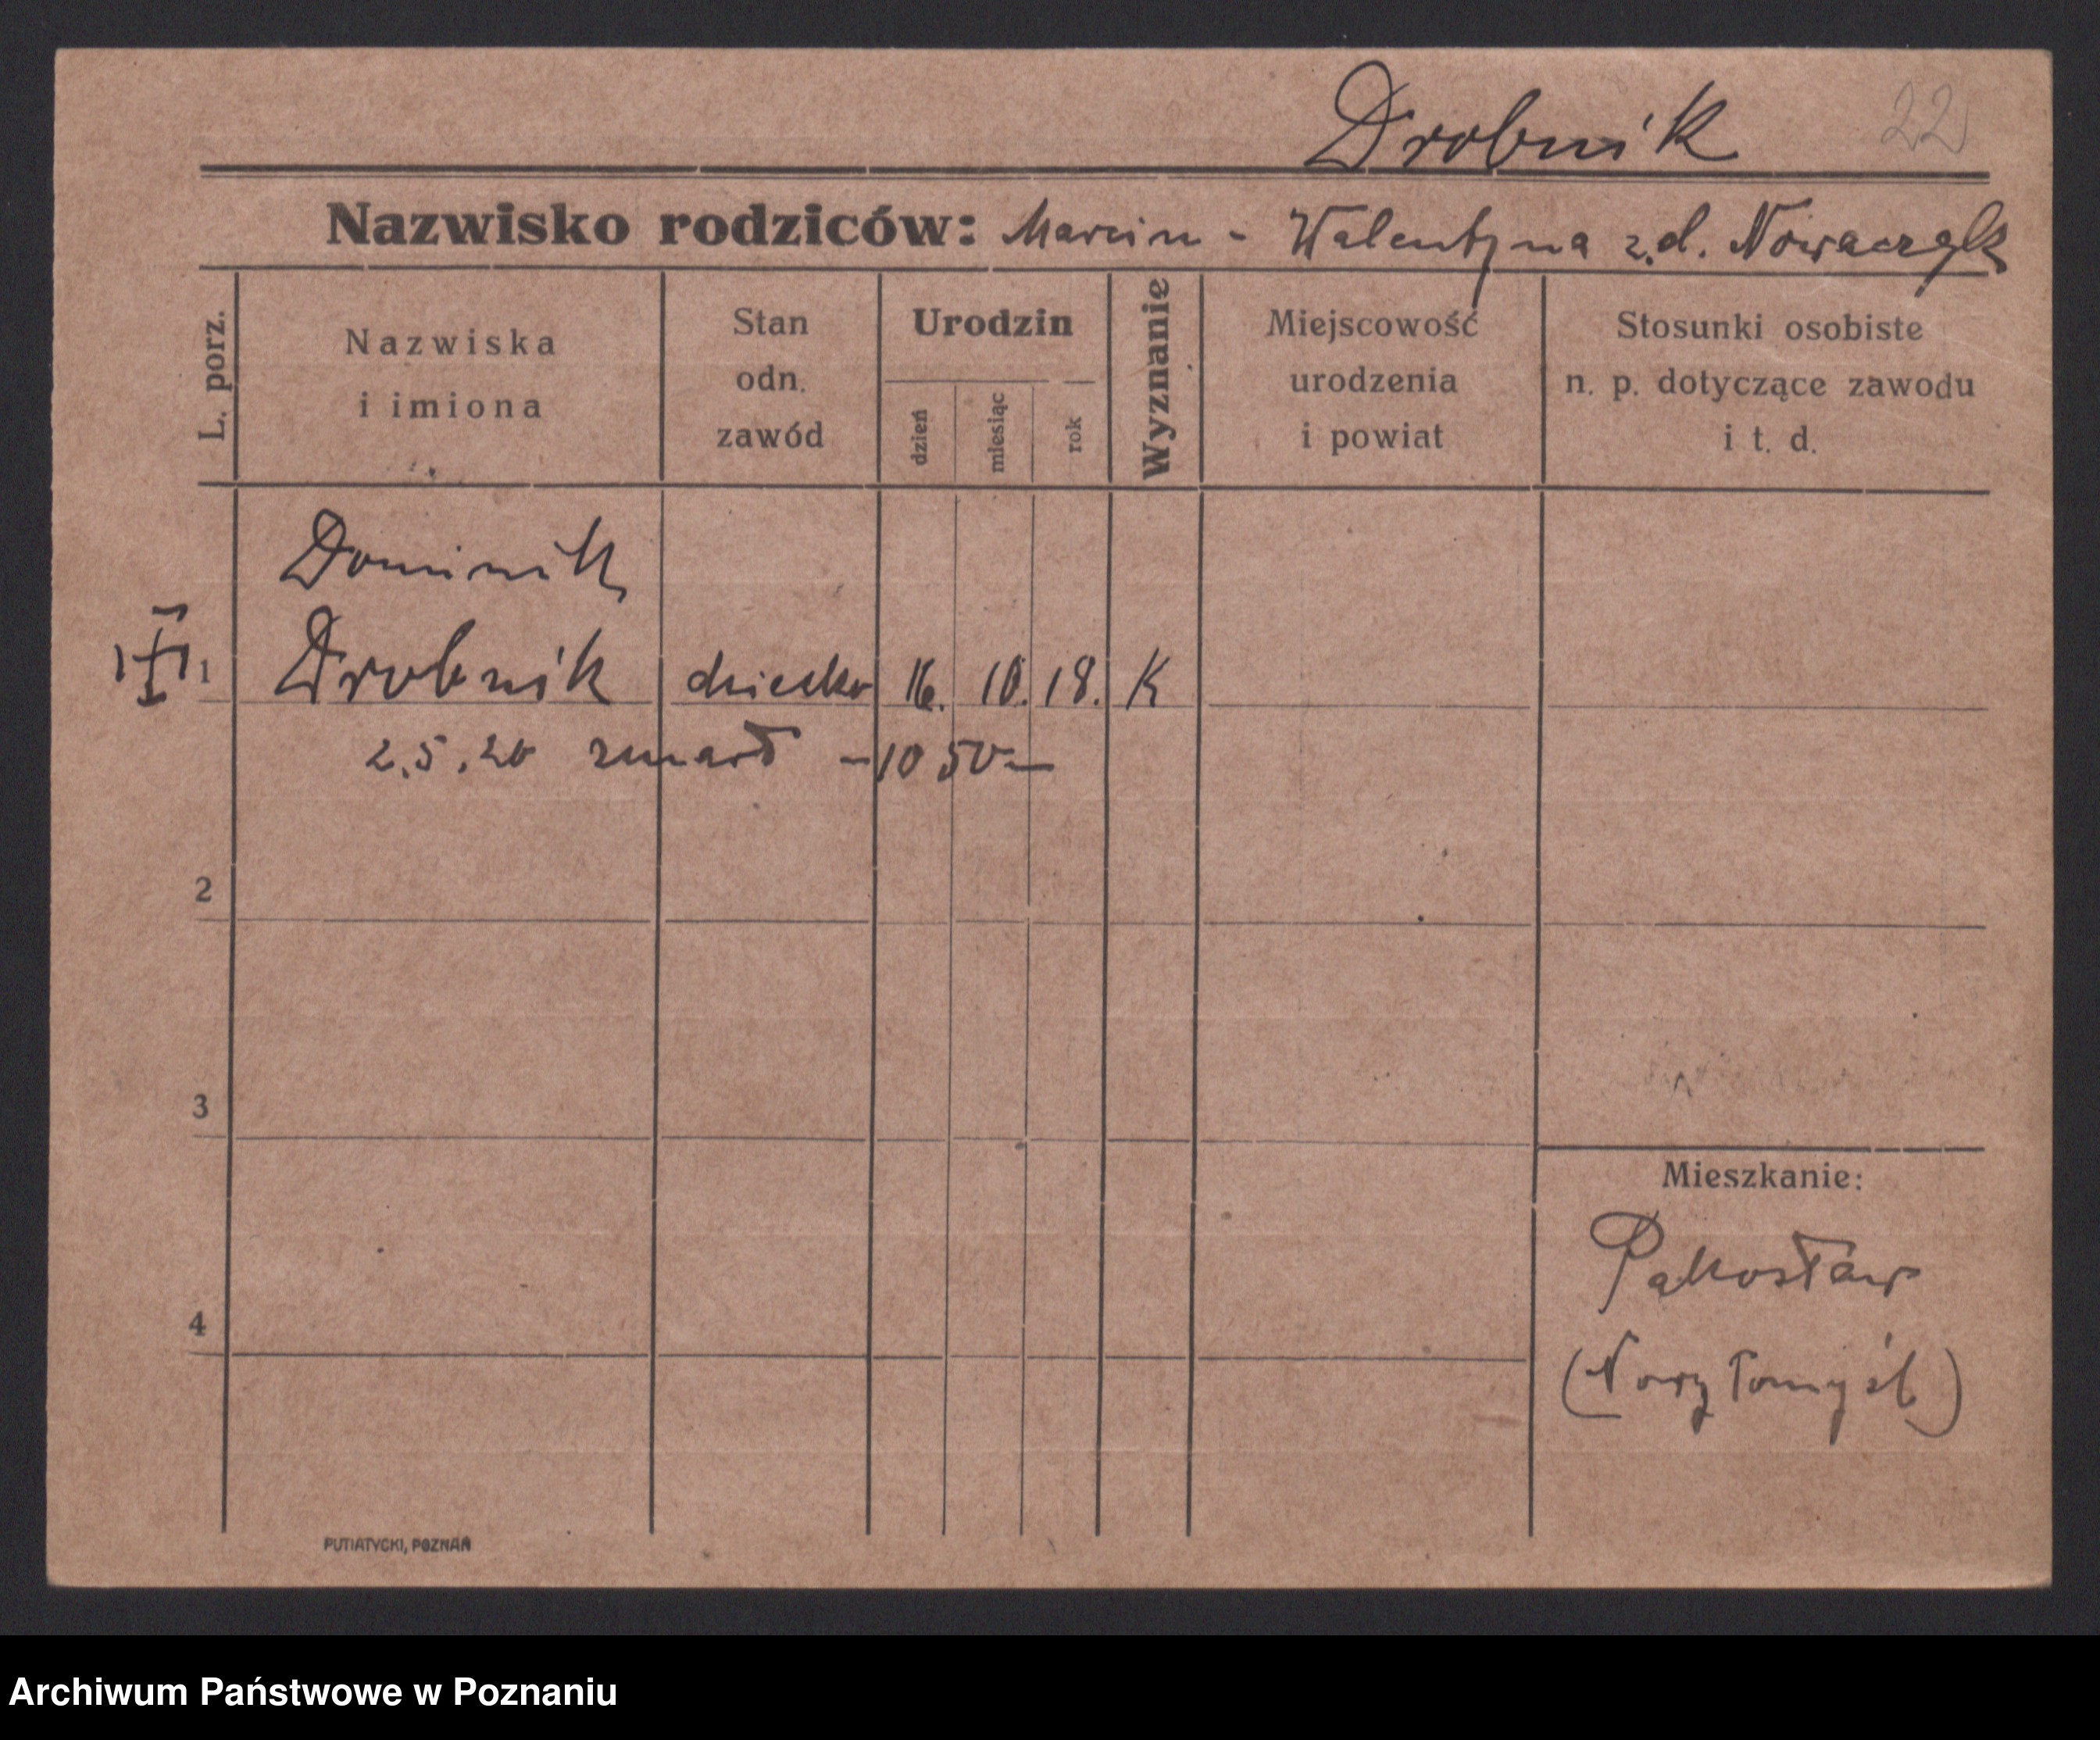 Drobnik 22
Nazwisko rodziców: Marcin - Walentyna z.d. Nowaczyk
L. porz.
Nazwiska
i imiona
Stan
odn.
zawód
Urodzin
dzień
miesiąc
rok
Wyznanie
Miejscowość
urodzenia
i powiat
Stosunki osobiste
n. p. dotyczące zawodu
i t. d.
Dominik
1 Drobnik dziecko 16. 10. 18. K
2.5.20 zmarł - 10 50 -
2
3
Mieszkanie:
Pakosław
4
(Nowy Tomyśl)
PUTIATYCKI, POZNAŃ
Archiwum Państwowe w Poznaniu